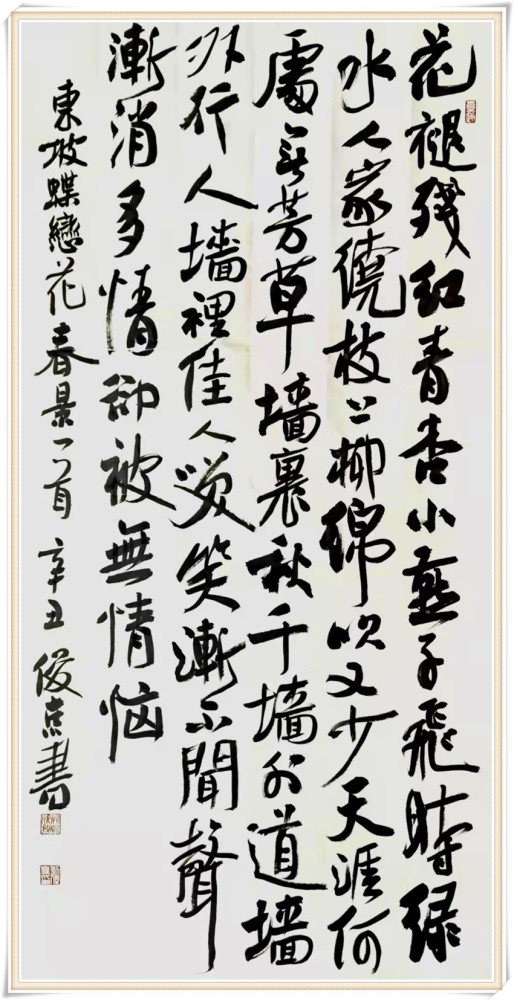 花褪殘红青杏小燕子飛時绿
水人家繞枝上柳绵吹又少天涯何
處無芳草墙裏秋千墙外道墙
外行人墙裡佳人笑笑漸不聞聲
漸消多情卻被無情恼
東坡蝶戀花春景一首 辛丑 俊京書